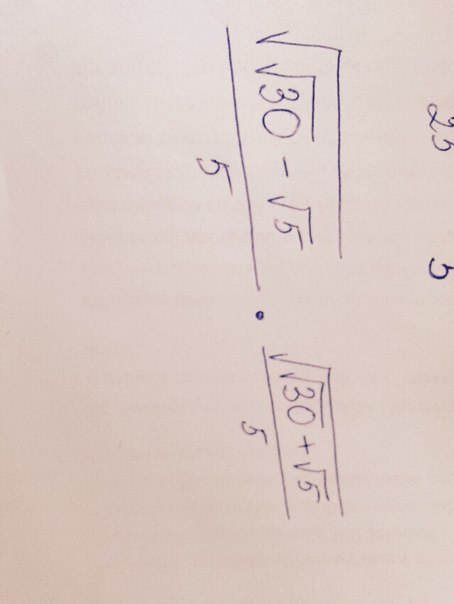 25 5
\frac{\sqrt{\sqrt{30} - \sqrt{5}}}{5} \cdot \frac{\sqrt{\sqrt{30} + \sqrt{5}}}{5}